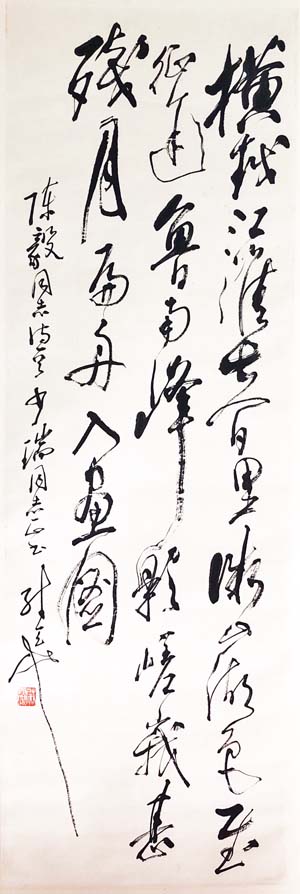 橫越江淮七百里微山湖色慰
征途魯南峰影嵯峨甚
殘月扁舟入畫圖
陳毅同志詩 瑞同志正